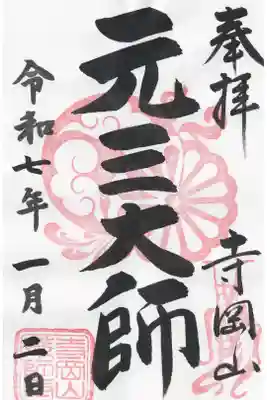 奉拝
寺岡山
元三大師
令和七年一月二日